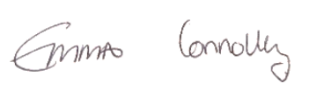 Emma Connolly